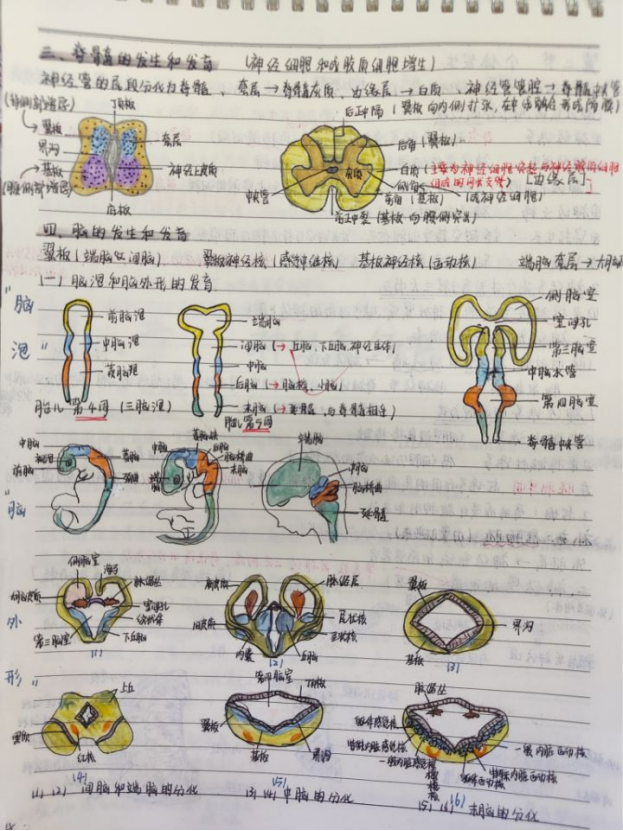 三、脊髓的发生和发育 (神经细胞和胶质细胞增生)
神经管的尾段分化为脊髓、套层→脊髓灰质、边缘层→白质、神经管管腔→脊髓中央管
后正中隔 (翼板向内侧扩张,在中线融合形成隔膜)
顶板
翼板
界沟
基板
套层
神经上皮质
底板
后角 (翼板)
白质
灰质
[边缘层]
中央管
前角 (基板) (运动神经细胞)
前正中裂 (基板向腹侧突出)
四、脑的发生和发育
翼板(端脑及间脑) 翼板神经核(感觉性核) 基板神经核(运动核) 端脑套层→大脑
(一) 脑泡和脑外形的发育
脑泡
前脑泡
中脑泡
菱脑泡
端脑
间脑
中脑
后脑 (→脑桥、小脑)
末脑 (→延髓,与脊髓相连)
侧脑室
室间孔
第三脑室
中脑水管
第四脑室
脊髓中央管
胎儿第4周 (三脑泡)
胎儿第5周
脑外形
中脑
前脑
菱脑
中脑
后脑
末脑
端脑
中脑
延髓
侧脑室
海马
脉络丛
室间孔
第三脑室
下丘脑
(1)
尾状核
豆状核
内囊
丘脑
(2)
翼板
界沟
基板
(3)
上丘
翼板
红核
(4)
第四脑室
顶板
翼板
基板
界沟
(5)
脉络丛
躯体感觉核
特殊内脏感觉核
一般内脏感觉核
一般内脏运动核
特殊内脏运动核
躯体运动核
(6)
(1)(2) 间脑和端脑的分化
(3)(4) 中脑的分化
(5)(6) 末脑的分化